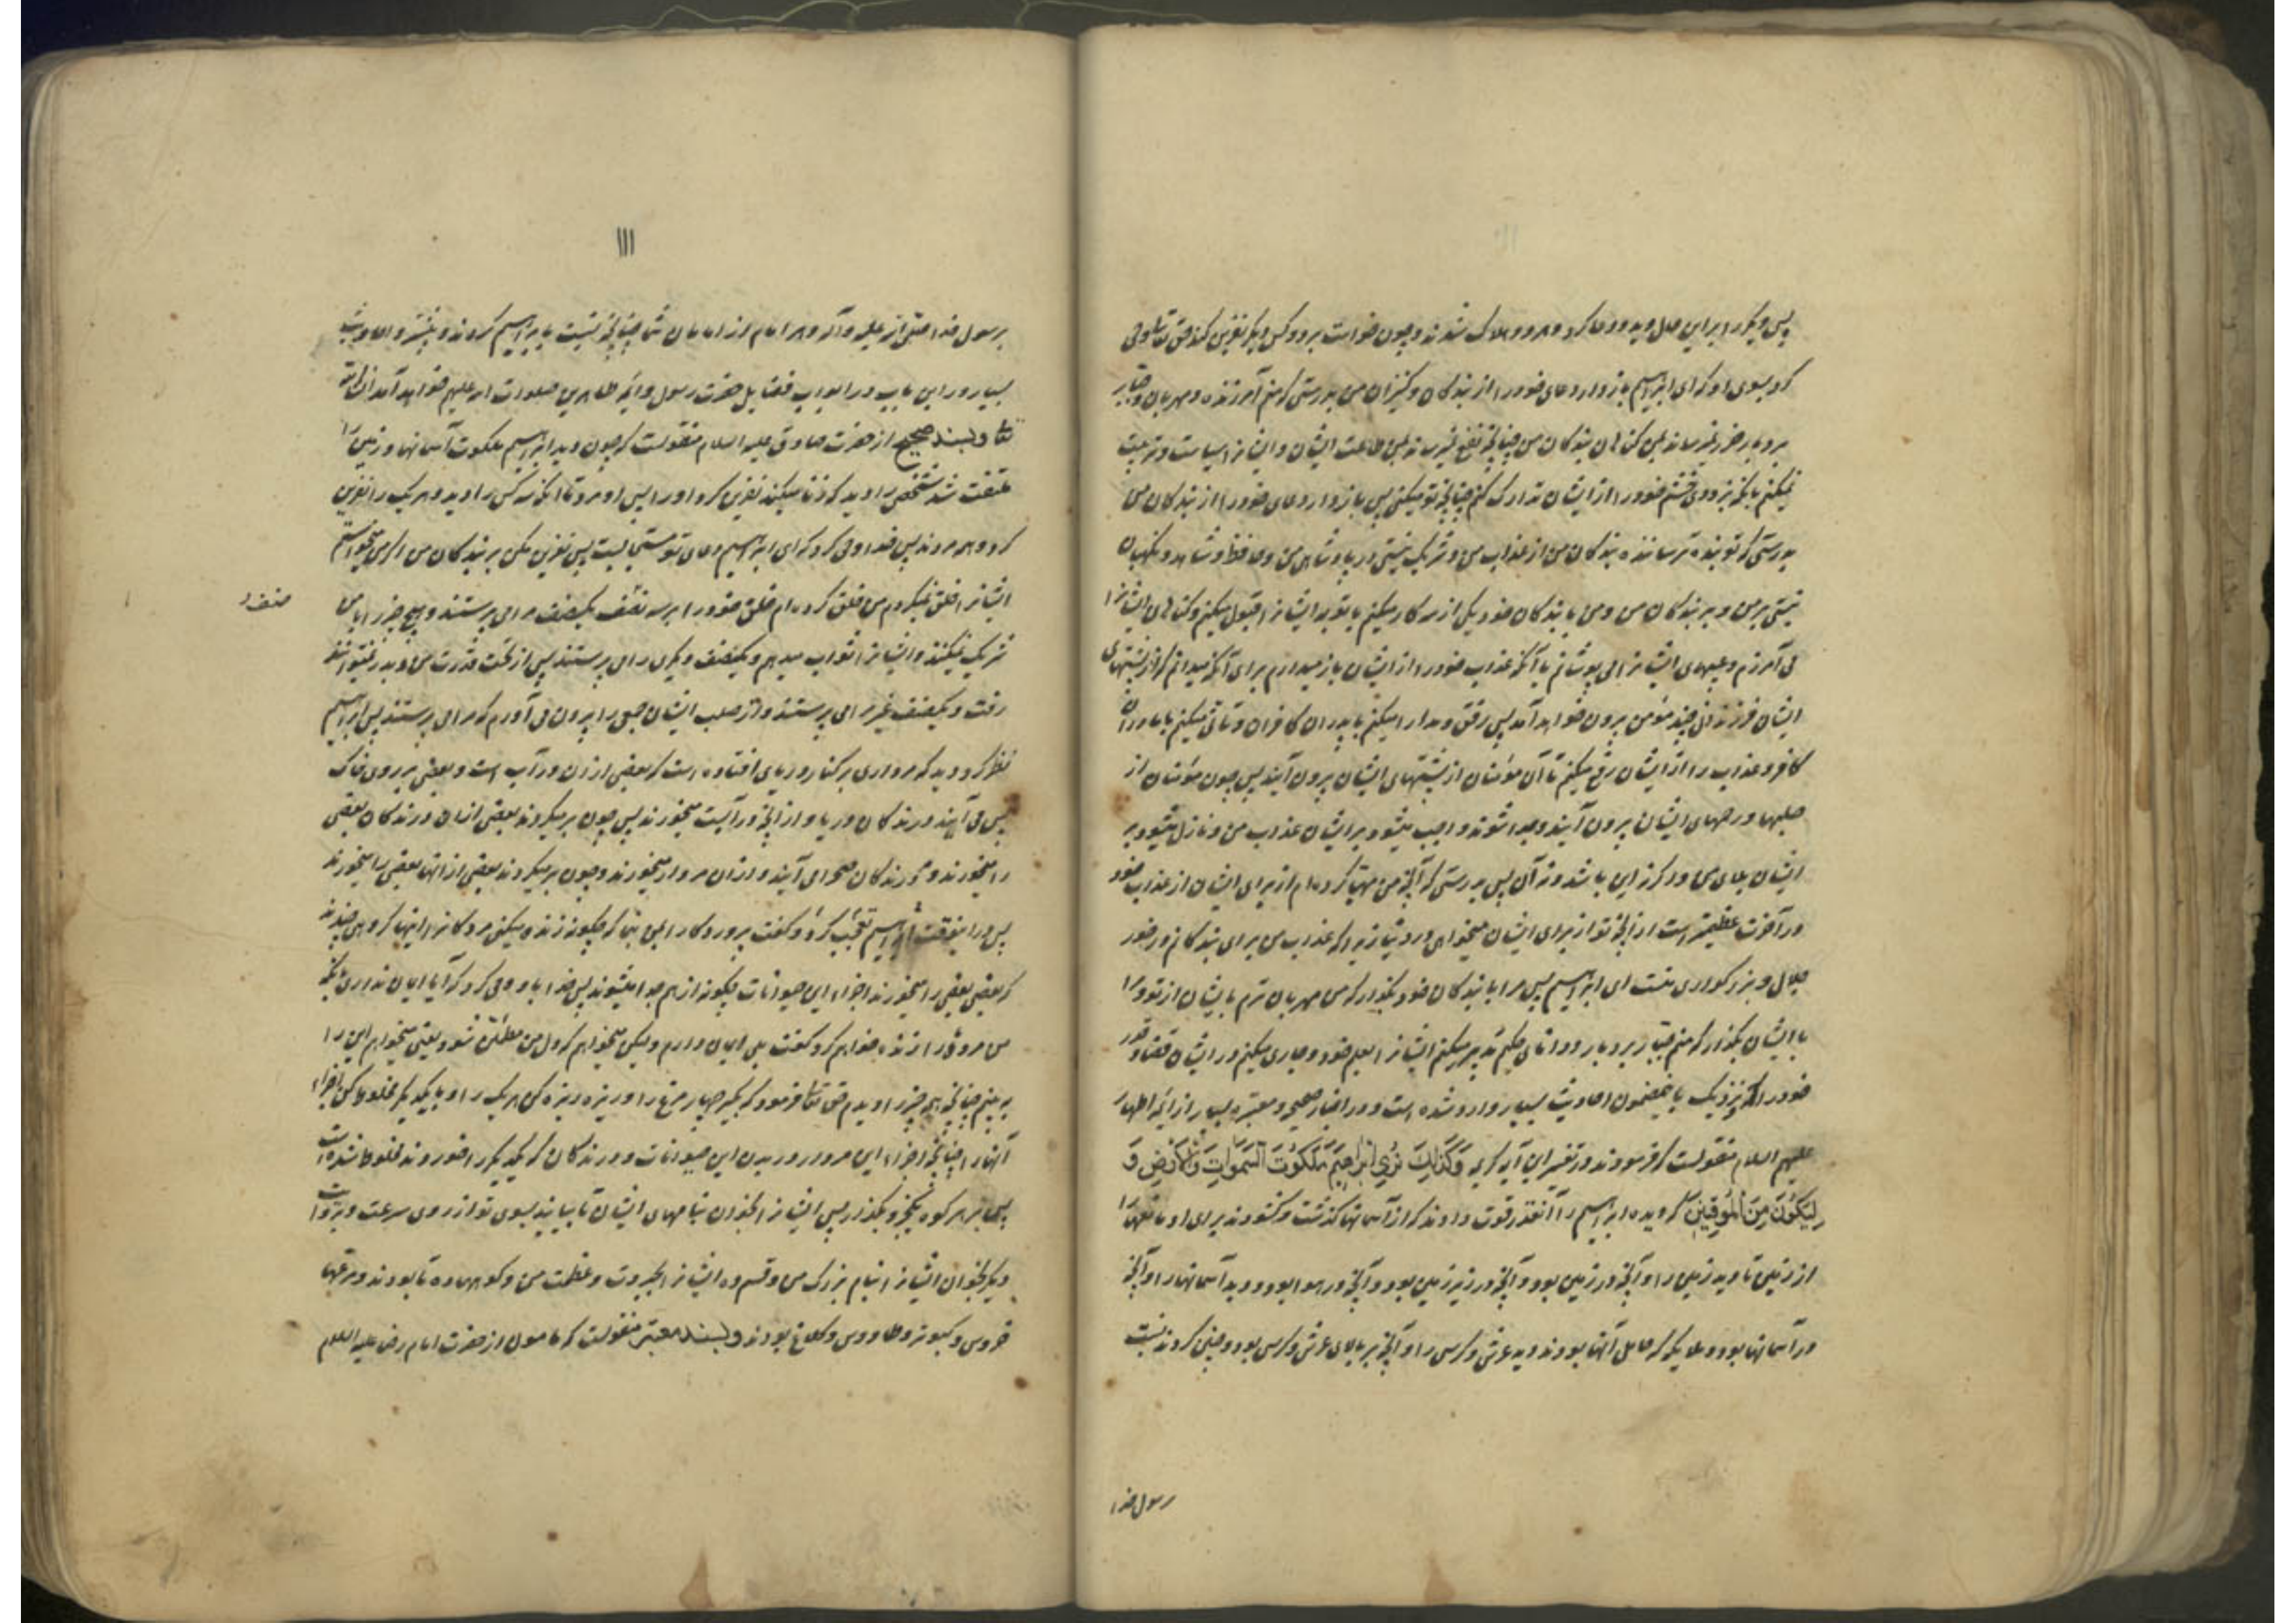 پس دیگر را بر این حال دید و دعا کرد و هر دو هلاک شدند و چون خواست بر دو کس دیگر نفرین کند حق تعالی وحی
کرد بسوی او که ای ابراهیم باز دار دعای خود را از بندگان و کنیزان من بدرستی که منم آمرزنده و مهربان و جبار
بردبار ضرر نمیرساند بمن گناهان بندگان من چنانچه نفع نمیرساند بمن طاعت ایشان و ایشانرا سیاست و تربیت
نمیکنم بآنکه بزودی خشم خود را از ایشان تدارک کنم چنانچه تو میکنی پس باز دار دعای خود را از بندگان من
بدرستی که تو بنده ترساننده بندگان من از عذاب من و شریک نیستی در پادشاهی من و حافظ و شاهد و نگهبان
نیستی بر من و بر بندگان من و من با بندگان خود یکی از سه کار میکنم یا توبه ایشانرا قبول میکنم و گناهان ایشانرا
می آمرزم و عیبهای ایشانرا می پوشانم یا آنکه عذاب خود را از ایشان باز میدارم برای آنکه میدانم که از پشتهای
ایشان فرزندانی چند مؤمن بیرون خواهد آمد پس رفق و مدارا میکنم با پدران کافران و تأنی میکنم با مادران
کافر و عذاب را از ایشان رفع میکنم تا آن مؤمنان از پشتهای ایشان بیرون آیند پس چون مؤمنان از
صلبها و رحمهای ایشان بیرون آیند و جدا شوند واجب میشود بر ایشان عذاب من و نازل میشود بر
ایشان بلای من و اگر نه این باشد و نه آن پس بدرستی که آنچه من مهیا کرده ام از برای ایشان از عذاب خود
در آخرت عظیمتر است از آنچه تو از برای ایشان میخواهی در دنیا زیرا که عذاب من برای بندگانم در خور
جلال و بزرگواری منست ای ابراهیم پس مرا با بندگان خود بگذار که من مهربان ترم بایشان از تو و مرا
با ایشان بگذار که منم جبار بردبار و دانای حکیم تدبیر میکنم ایشانرا بعلم خود و جاری میکنم در ایشان قضا و قدر
خود را نزدیک باینمضمون احادیث بسیار وارد شده است و در اخبار صحیح و معتبره بسیار از ائمه اطهار
علیهم السلام منقولست که فرمودند در تفسیر این آیه کریمه وَكَذَلِكَ نُرِي إِبْرَاهِيمَ مَلَكُوتَ السَّمَوَاتِ وَالْأَرْضِ وَ
لِيَكُونَ مِنَ الْمُوقِنِينَ که دیده ابراهیم را آنقدر قوت دادند که از آسمانها گذشت و گشودند برای او مانعها را
از زمین تا دید زمین را و آنچه در زمین بود و آنچه در زیر زمین بود و آنچه در هوا بود و دید آسمانها را و آنچه
در آسمانها بود و ملایکه که حامل آنها بودند و دید عرش و کرسی را و آنچه بر بالای عرش و کرسی بود و چنین کردند نسبت
رسول خدا
۱۱۱
برسول خدا صلی الله علیه و آله و هر امام از امامان شما چنانچه نسبت بابراهیم کردند و بیشتر و احادیث
بسیار در این باب در ابواب فضایل حضرت رسول و ائمه طاهرین صلوات الله علیهم خواهد آمد ان شاء الله
تعالی و بسند صحیح از حضرت صادق علیه السلام منقولست که چون دید ابراهیم ملکوت آسمانها و زمین را
ملتفت شد شخصی را دید که زنا میکند نفرین کرد او را پس او مرد تا آنکه سه کس را دید و هر یک را نفرین
کرد و همه مردند پس خدا وحی کرد که ای ابراهیم دعای تو مستجابست پس نفرین مکن بر بندگان من اگر من میخواستم
ایشانرا خلق نمیکردم من خلق کرده ام خلق خود را بر سه نصف یکصنف مرا می پرستند و هیچ چیز را با من
صنف
شریک نمیکنند و ایشانرا ثواب میدهم و یکصنف دیگری را می پرستند پس از تحت قدرت من بدر نمیتوانند
رفت و یکصنف غیر مرا می پرستند و از صلب ایشان جمعی را بیرون می آورم که مرا می پرستند پس ابراهیم
نظر کرد و دید که مرداری بر کنار دریای افتاده است که بعضی از ان در آب است و بعضی بر روی خاک
پس می آیند درندگان دریا و از آنچه در آبست میخورند پس چون برمیگردند بعضی از ان درندگان بعضی
را میخورند و درندگان صحرا می آیند و از ان مردار میخورند و چون برمیگردند بعضی از انها بعضی را میخورند
پس در اینوقت ابراهیم تعجب کرد و گفت پروردگارا بمن بنما که چگونه زنده میکنی مردگانرا اینها گروهی چندند
که بعضی بعضی را میخورند اجزاء این حیوانات چگونه از هم جدا میشوند پس خدا باو وحی کرد که آیا ایمان نداری بآنکه
من مرده را زنده خواهم کرد گفت بلی ایمان دارم و لیکن میخواهم که دل من مطمئن شود یعنی میخواهم این را
ببینم چنانچه همه چیز را دیدم حق تعالی فرمود که بگیر چهار مرغ را و ریزه ریزه کن هر یک را و با یکدیگر مخلوط کن اجزاء
آنها را چنانچه اجزاء این مردار در بدن این حیوانات و درندگان که یکدیگر را خوردند مخلوط شده است
پس بر هر کوه یکجزو بگذار پس ایشانرا بخوان بنامهای ایشان تا بیایند بسوی تو از روی سرعت و بروایت
دیگر بخوان ایشانرا بنام بزرگ من و قسم ده ایشانرا بجبروت و عظمت من و کوهها ده تا بودند و مرغها
خروس و کبوتر و طاووس و کلاغ بودند و بسند معتبر منقولست که مامون از حضرت امام رضا علیه السلام